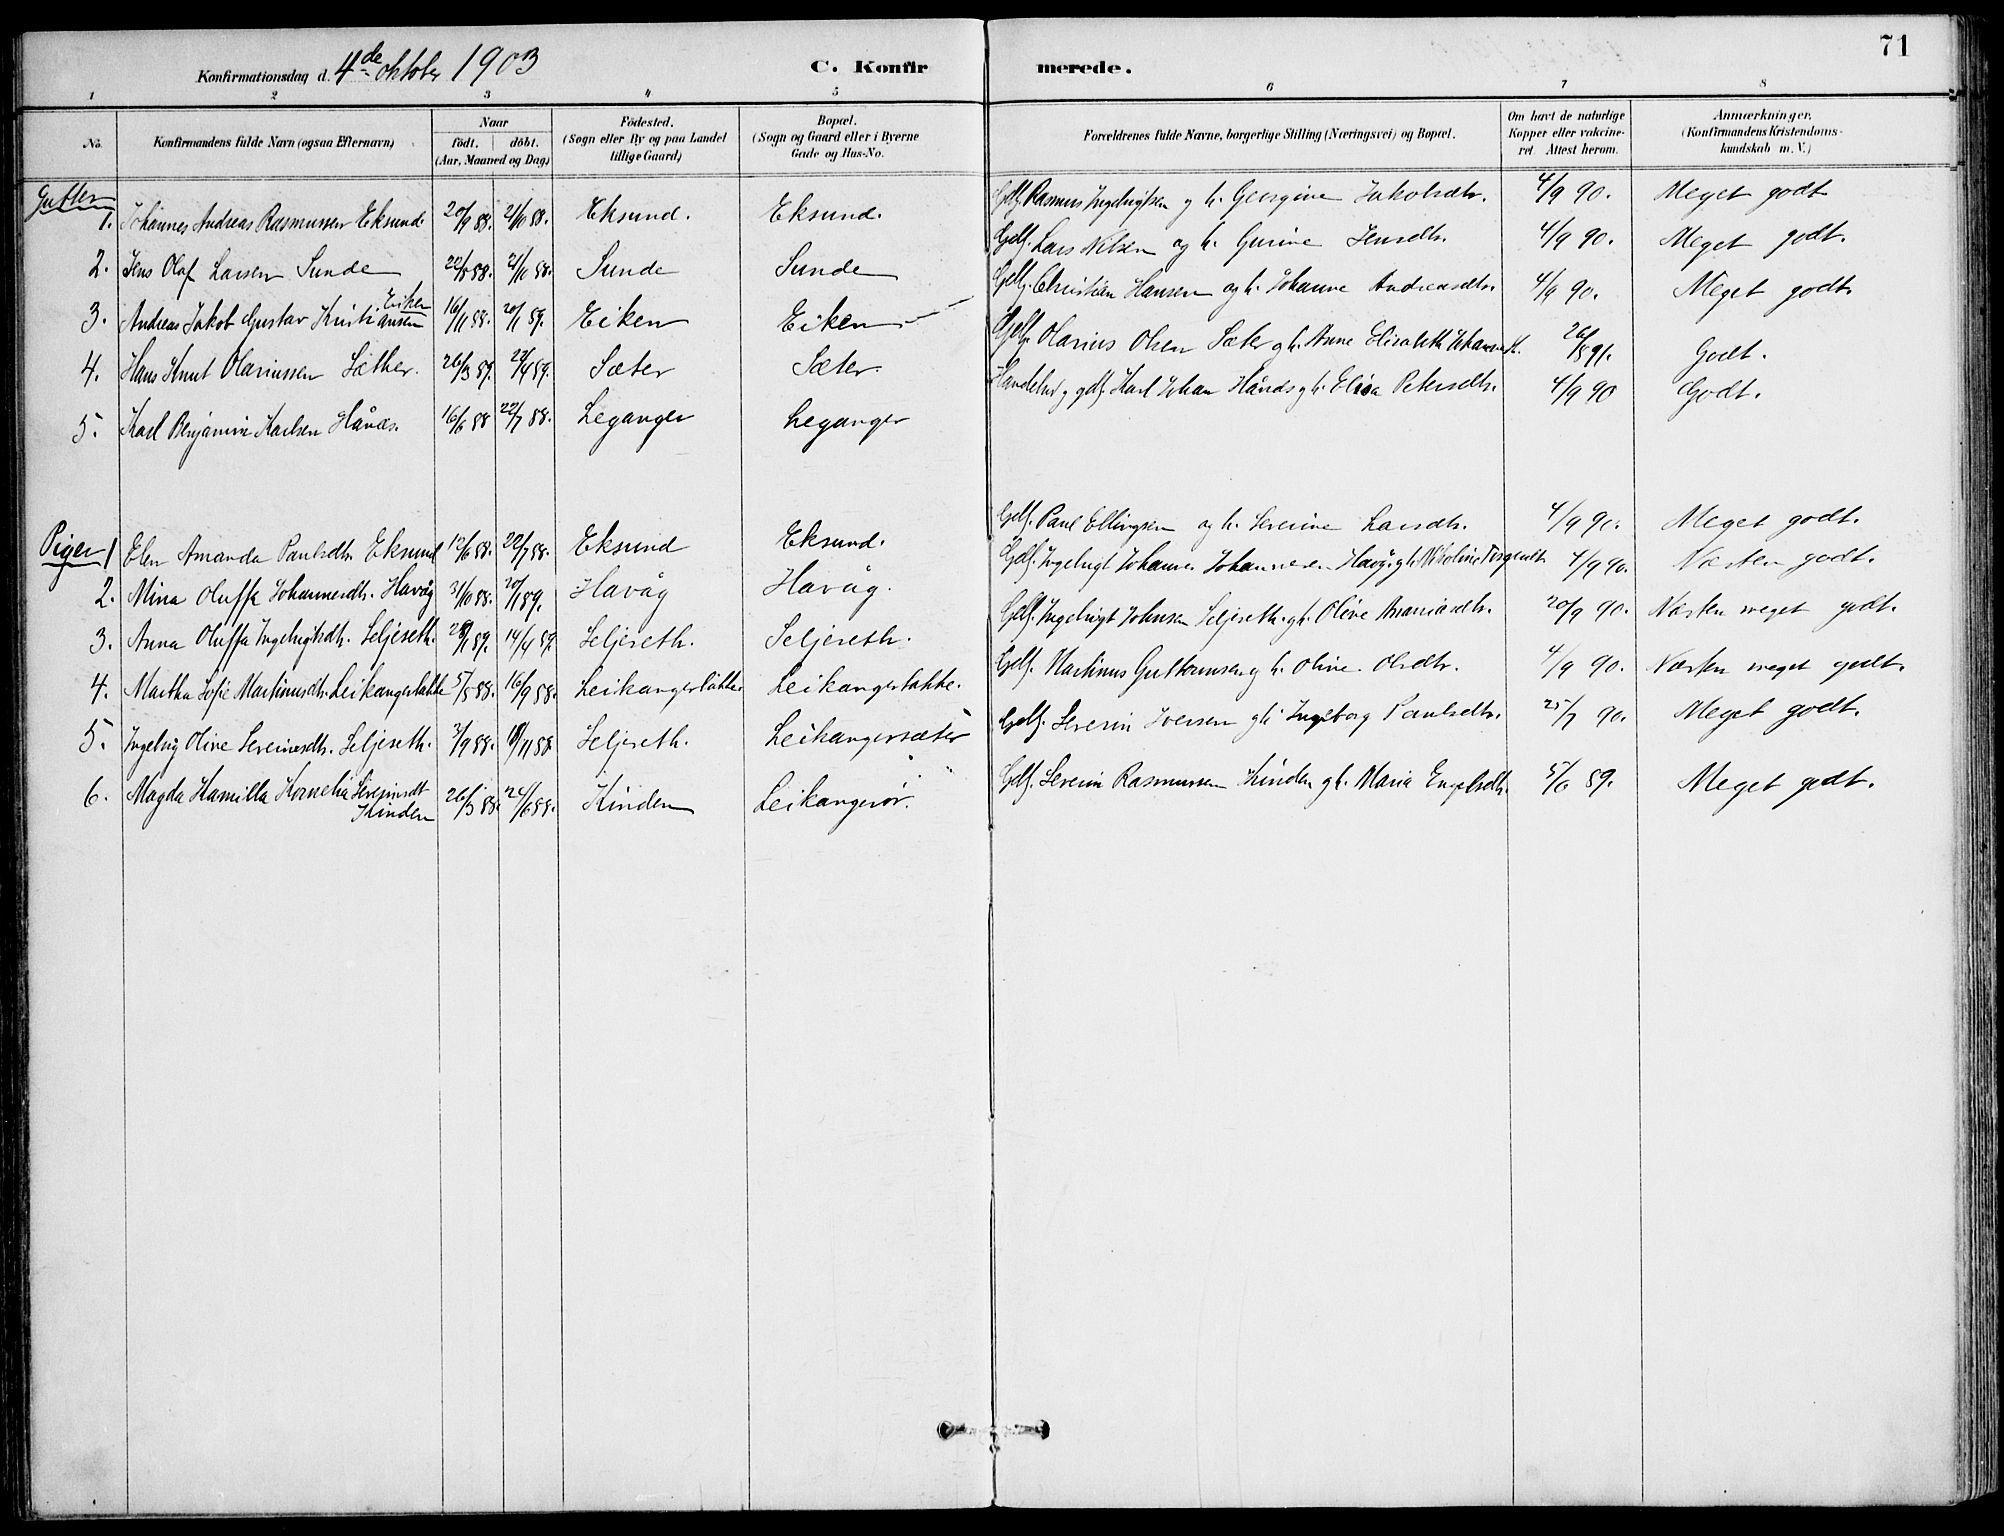 71
Konfirmationsdag d. 4de oktober 1903 C. Konfirmerede.
1 2 3 4 5 6 7 8
No. Konfirmandens fulde Navn (ogsaa Efternavn) Naar födt. döbt. (Aar, Maaned og Dag) Födested. (Sogn eller By og paa Landet tillige Gaard) Bopæl. (Sogn og Gaard eller i Byerne Gade og Hus-No. Forældrenes fulde Navne, borgerlige Stilling (Næringsvei) og Bopæl. Om havt de naturlige Kopper eller vakcineret. Attest herom. Anmærkninger. (Konfirmandens Kristendomskundskab m. V.)
Gutter
1. Johannes Andreas Rasmussen Eksund. 20/9 88. 21/10 88. Eksund. Eksund. Gdf. Rasmus Ingebrigtsen og h. Georgine Jakobsdtr. 4/9 90. Meget godt
2. Jens Olaf Larsen Sunde 22/8 88. 21/10 88. Sunde Sunde Gdf. Lars Nilsen og h. Gurine Jensdtr. 4/9 90. Meget godt.
3. Andreas Jakob Gustav Kristiansen Eiken 16/11 88. 20/1 89. Eiken Eiken Gdf. Christian Hansen og h. Johanne Andreasdtr. 4/9 90. Meget godt
4. Hans Knut Olariussen Sæther. 26/3 89. 22/4 89. Sæter Sæter Gdf. Olarius Olsen Sæter og h. Anne Elisabeth Johansdt. 26/8 91. Godt.
5. Karl Benjamin Karlsen Hånæs. 16/6 88 22/7 88. Leganger Leganger Handelsm og gdf. Karl Johan Hånæs og h. Elisa Petersdtr. 4/9 90 Godt.
Piger
1 Elen Amanda Paulsdtr. Eksund 12/6 88. 22/7 88. Eksund Eksund. Gdf. Paul Ellingsen og h. Severine Larsdtr. 4/9 90. Meget godt.
2. Mina Oluffa Johannesdtr. Havåg 31/10 88. 20/1 89. Havåg Havåg. Gdf. Ingebrigt Johannes Johannesen Havåg. og h. Nikoline 4/9 90. Næsten godt.
3. Anna Oluffa Ingebrigtsdtr. Seljeseth. 28/1 89. 14/4 89. Seljeseth. Seljeseth. Gdf. Ingebrigt Johnsen Seljeseth. og h. Olive Ananiasdtr. 20/9 90. Næsten meget godt.
4. Martha Sofie Martinusdtr. Leikangerbakke 5/8 88. 16/9 88. Leikangerbakke Leikangerbakke. Gdf. Martinus Guttormsen og h. Olive Olsdtr. 4/9 90. Næsten meget godt.
5. Ingebrig Olive Severinsdtr. Seljeseth. 3/9 88. 18/11 88. Seljeseth. Leikangersæter Gdf. Severin Iversen og h. Ingeborg Paulsdtr. 25/7 90. Meget godt.
6. Magda Hamilla Kornelia Severinsdt Kinden 26/3 88. 24/6 88. Kinden Leikangerør. Gdf. Severin Rasmussen Kinden og h. Maria Engelsdtr. 5/6 89. Meget godt.